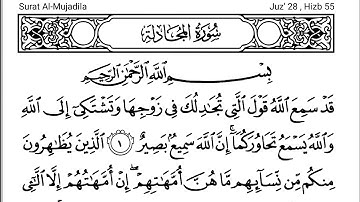 Surat Al-Mujadila Juz' 28 , Hizb 55
سُورَةُ المُجَادلة
بِسْمِ اللَّهِ الرَّحْمَٰنِ الرَّحِيمِ
قَدْ سَمِعَ اللَّهُ قَوْلَ الَّتِي تُجَٰدِلُكَ فِي زَوْجِهَا وَتَشْتَكِي إِلَى اللَّهِ
وَاللَّهُ يَسْمَعُ تَحَاوُرَكُمَا ۚ إِنَّ اللَّهَ سَمِيعٌ بَصِيرٌ ١ الَّذِينَ يُظَٰهِرُونَ
مِنكُم مِّن نِّسَآئِهِم مَّا هُنَّ أُمَّهَٰتِهِمْ ۖ إِنْ أُمَّهَٰتُهُمْ إِلَّا الَّٰٓـِٔي